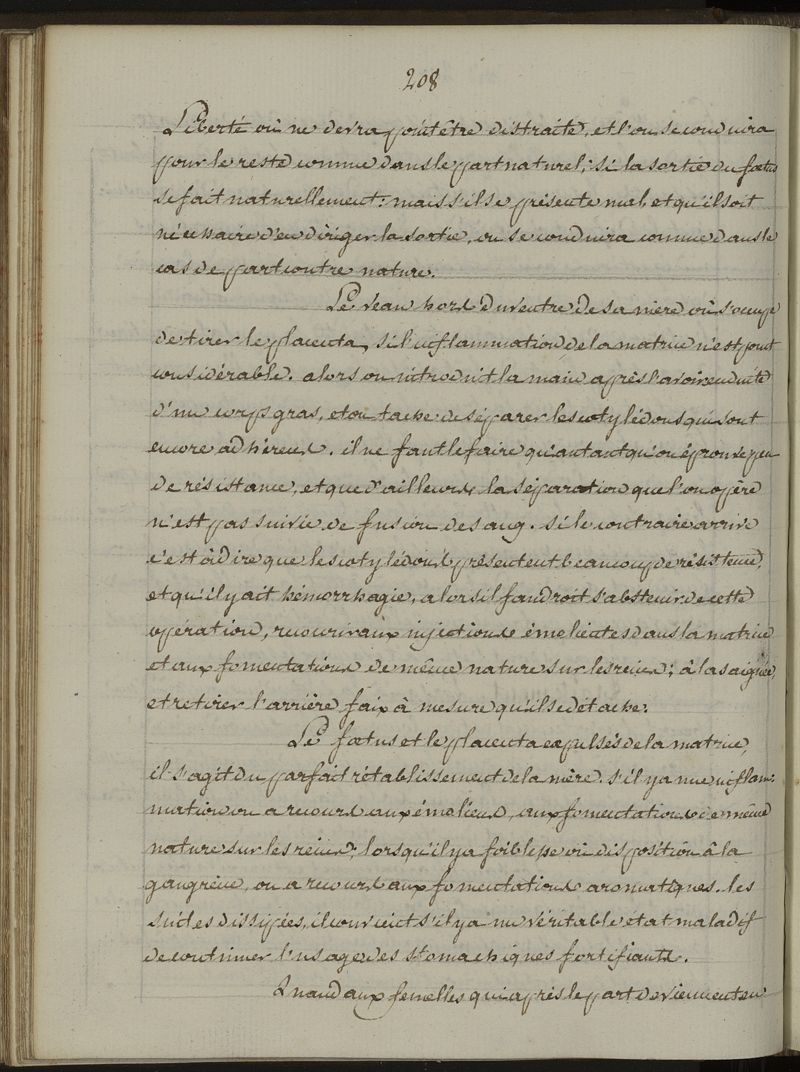 208
Liberté où ne devra point être distraite, et l'on se conduira
pour le reste comme dans le part naturel; si la sortie du fœtus
se fait naturellement: mais s'il se présente mal, et qu'il soit
nécessaire d'en diriger la sortie, on se conduira comme dans le
cas de part contre nature.
Le veau hors du ventre de sa mère on s'occupe
de tirer le placenta, si l'inflammation de la matrice n'est point
considérable. alors on introduit la main après l'avoir enduite
d'un corps gras, et on tache de séparer les cotylédons qui sont
encore adhèrens. il ne faut le faire qu'autant qu'on éprouve peu
de résistance, et que d'ailleurs la séparation que l'on opère
n'est pas suivie de fusion de sang. si le contraire arrive
c'est à dire que les cotylédons présentent beaucoup de résistence,
et qu'il y ait hémorrhagie, alors il faudroit s'abstenir de cette
opération, recourir aux injections émolientes dans la matrice
et aux fomentations de même nature sur les reins; à la saignée,
et retirer l'arrière faix à mesure qu'il se détache.
Le fœtus et le placenta expulsés de la matrice,
il s'agit du parfait rétablissement de la mère. s'il y a une inflam-
mation on a recours aux émoliens, aux fomentations de même
nature sur les reins; lorsqu'il y a foiblesse où disposition à la
gangrène, on a recours aux fomentations aromatiques. les
suites dissipées, il convient s'il y a un véritable etat maladif
de continuer l'usage des stomachiques fortifiants.
Quand aux femelles qui après le part deviennent en